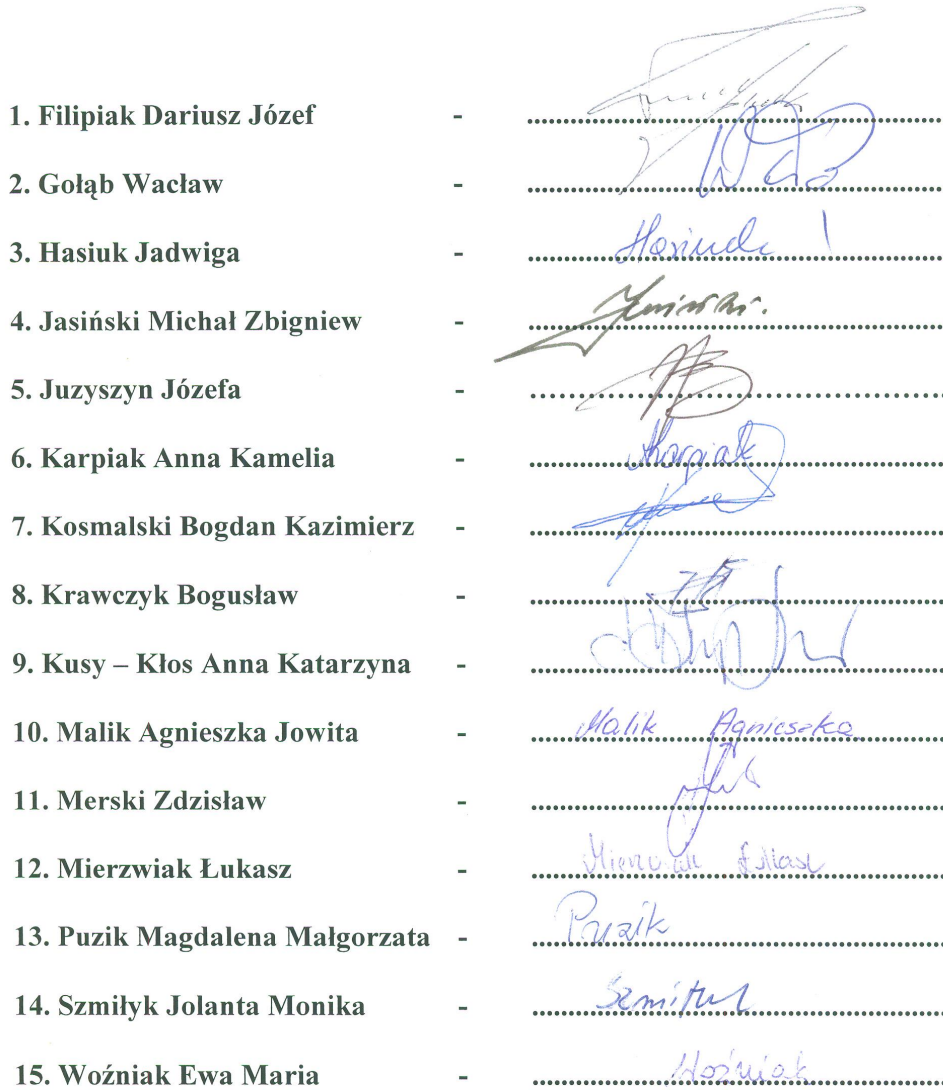 1. Filipiak Dariusz Józef - ........................................
2. Gołąb Wacław - ........................................
3. Hasiuk Jadwiga - ........................................ Hasiuk
4. Jasiński Michał Zbigniew - ........................................ Jasiński
5. Juzyszyn Józefa - ........................................
6. Karpiak Anna Kamelia - ........................................ Karpiak
7. Kosmalski Bogdan Kazimierz - ........................................
8. Krawczyk Bogusław - ........................................
9. Kusy – Kłos Anna Katarzyna - ........................................
10. Malik Agnieszka Jowita - ........................................ Malik Agnieszka
11. Merski Zdzisław - ........................................
12. Mierzwiak Łukasz - ........................................ Mierzwiak Łukasz
13. Puzik Magdalena Małgorzata - ........................................ Puzik
14. Szmiłyk Jolanta Monika - ........................................
15. Woźniak Ewa Maria - ........................................ Woźniak